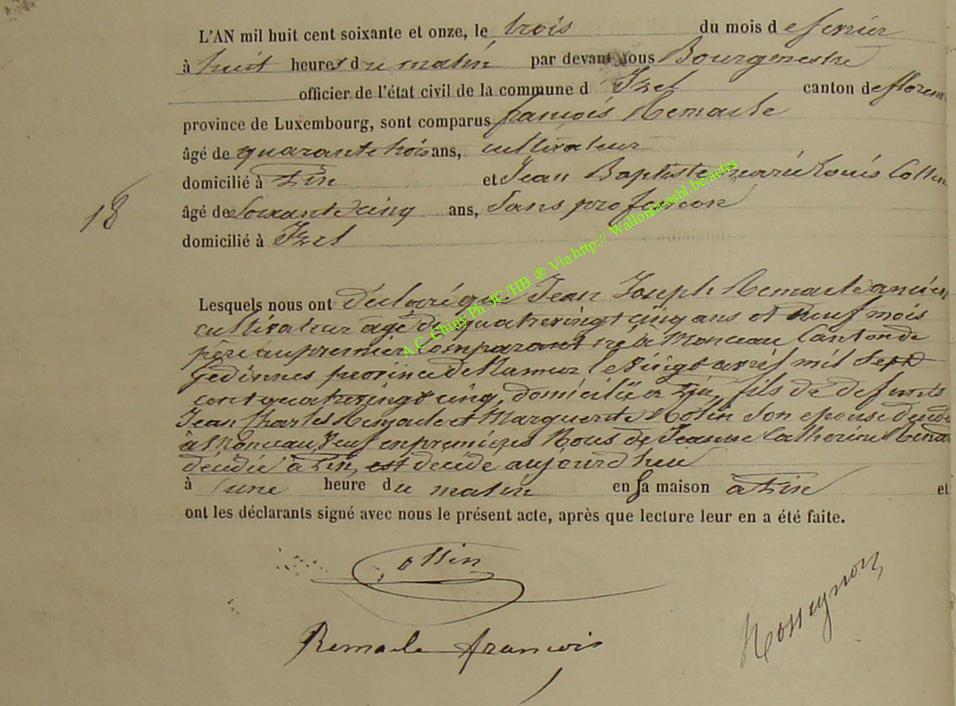 L'AN mil huit cent soixante et onze, le trois du mois de fevrier
à huit heures du matin, par devant nous Bourgmestre
officier de l'état civil de la commune d Izel canton de floren
province de Luxembourg, sont comparus françois Remacle
âgé de quarante trois ans, cultivateur
domicilié à Pin et Jean Baptiste marie Louis Collin
18
âgé de Soixante cinq ans, Sans profession
domicilié à Izel
Lesquels nous ont déclaré que Jean Joseph Remacle ancien
cultivateur âgé de quatre vingt cinq ans et neuf mois
père au premier Comparant né à Monceau Canton de
gedinnes province de Namur le vingt avril mil Sept
cent quatre vingt cinq, domicilié à Pin, fils de defunts
Jean Charles Remacle et Marguerite son epouse
à Monceau, veuf en premières Noces de Jeanne Catherine
décédée à Pin, est décédé aujourd'hui
à une heure du matin en sa maison à Pin et
ont les déclarants signé avec nous le présent acte, après que lecture leur en a été faite.
A.C. Chiny Ph JC/HB ® Via http:// Walloniasbl.be/actes
Remacle francois